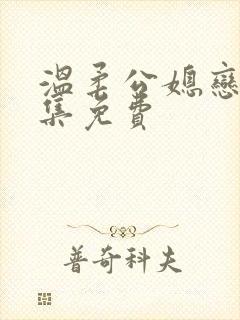 溫柔公媳戀
集免費
普奇科夫